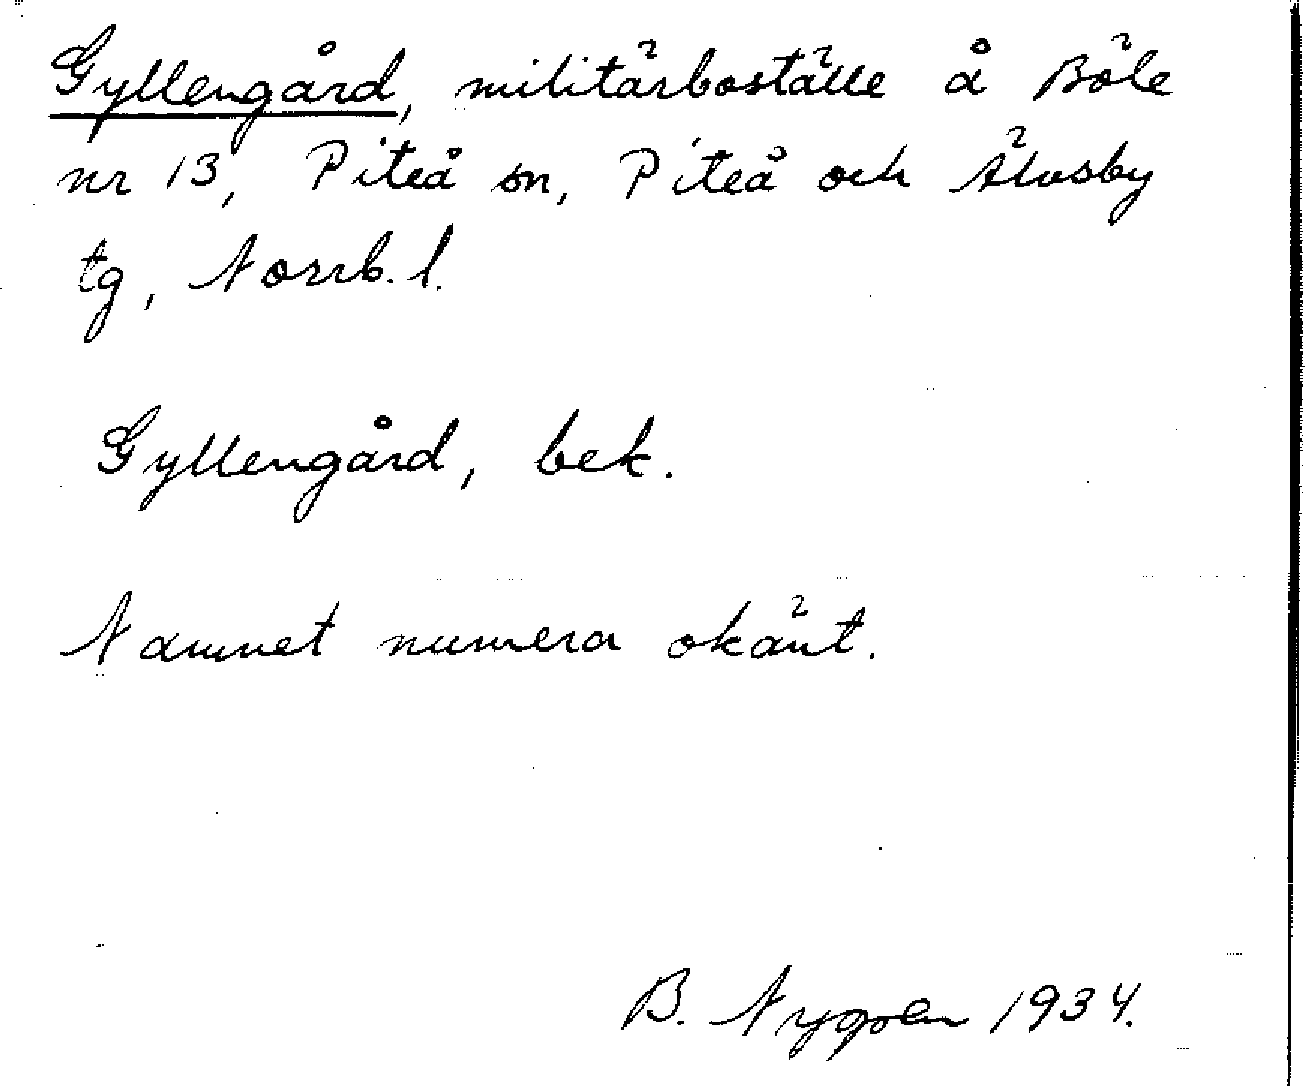 Gyllengård, militärboställe å Böle
nr 13, Piteå sn, Piteå och Älvsby
tg, Norrb. l.
Gyllengård, bek.
Namnet numera okänt.
B. Nygren 1934.